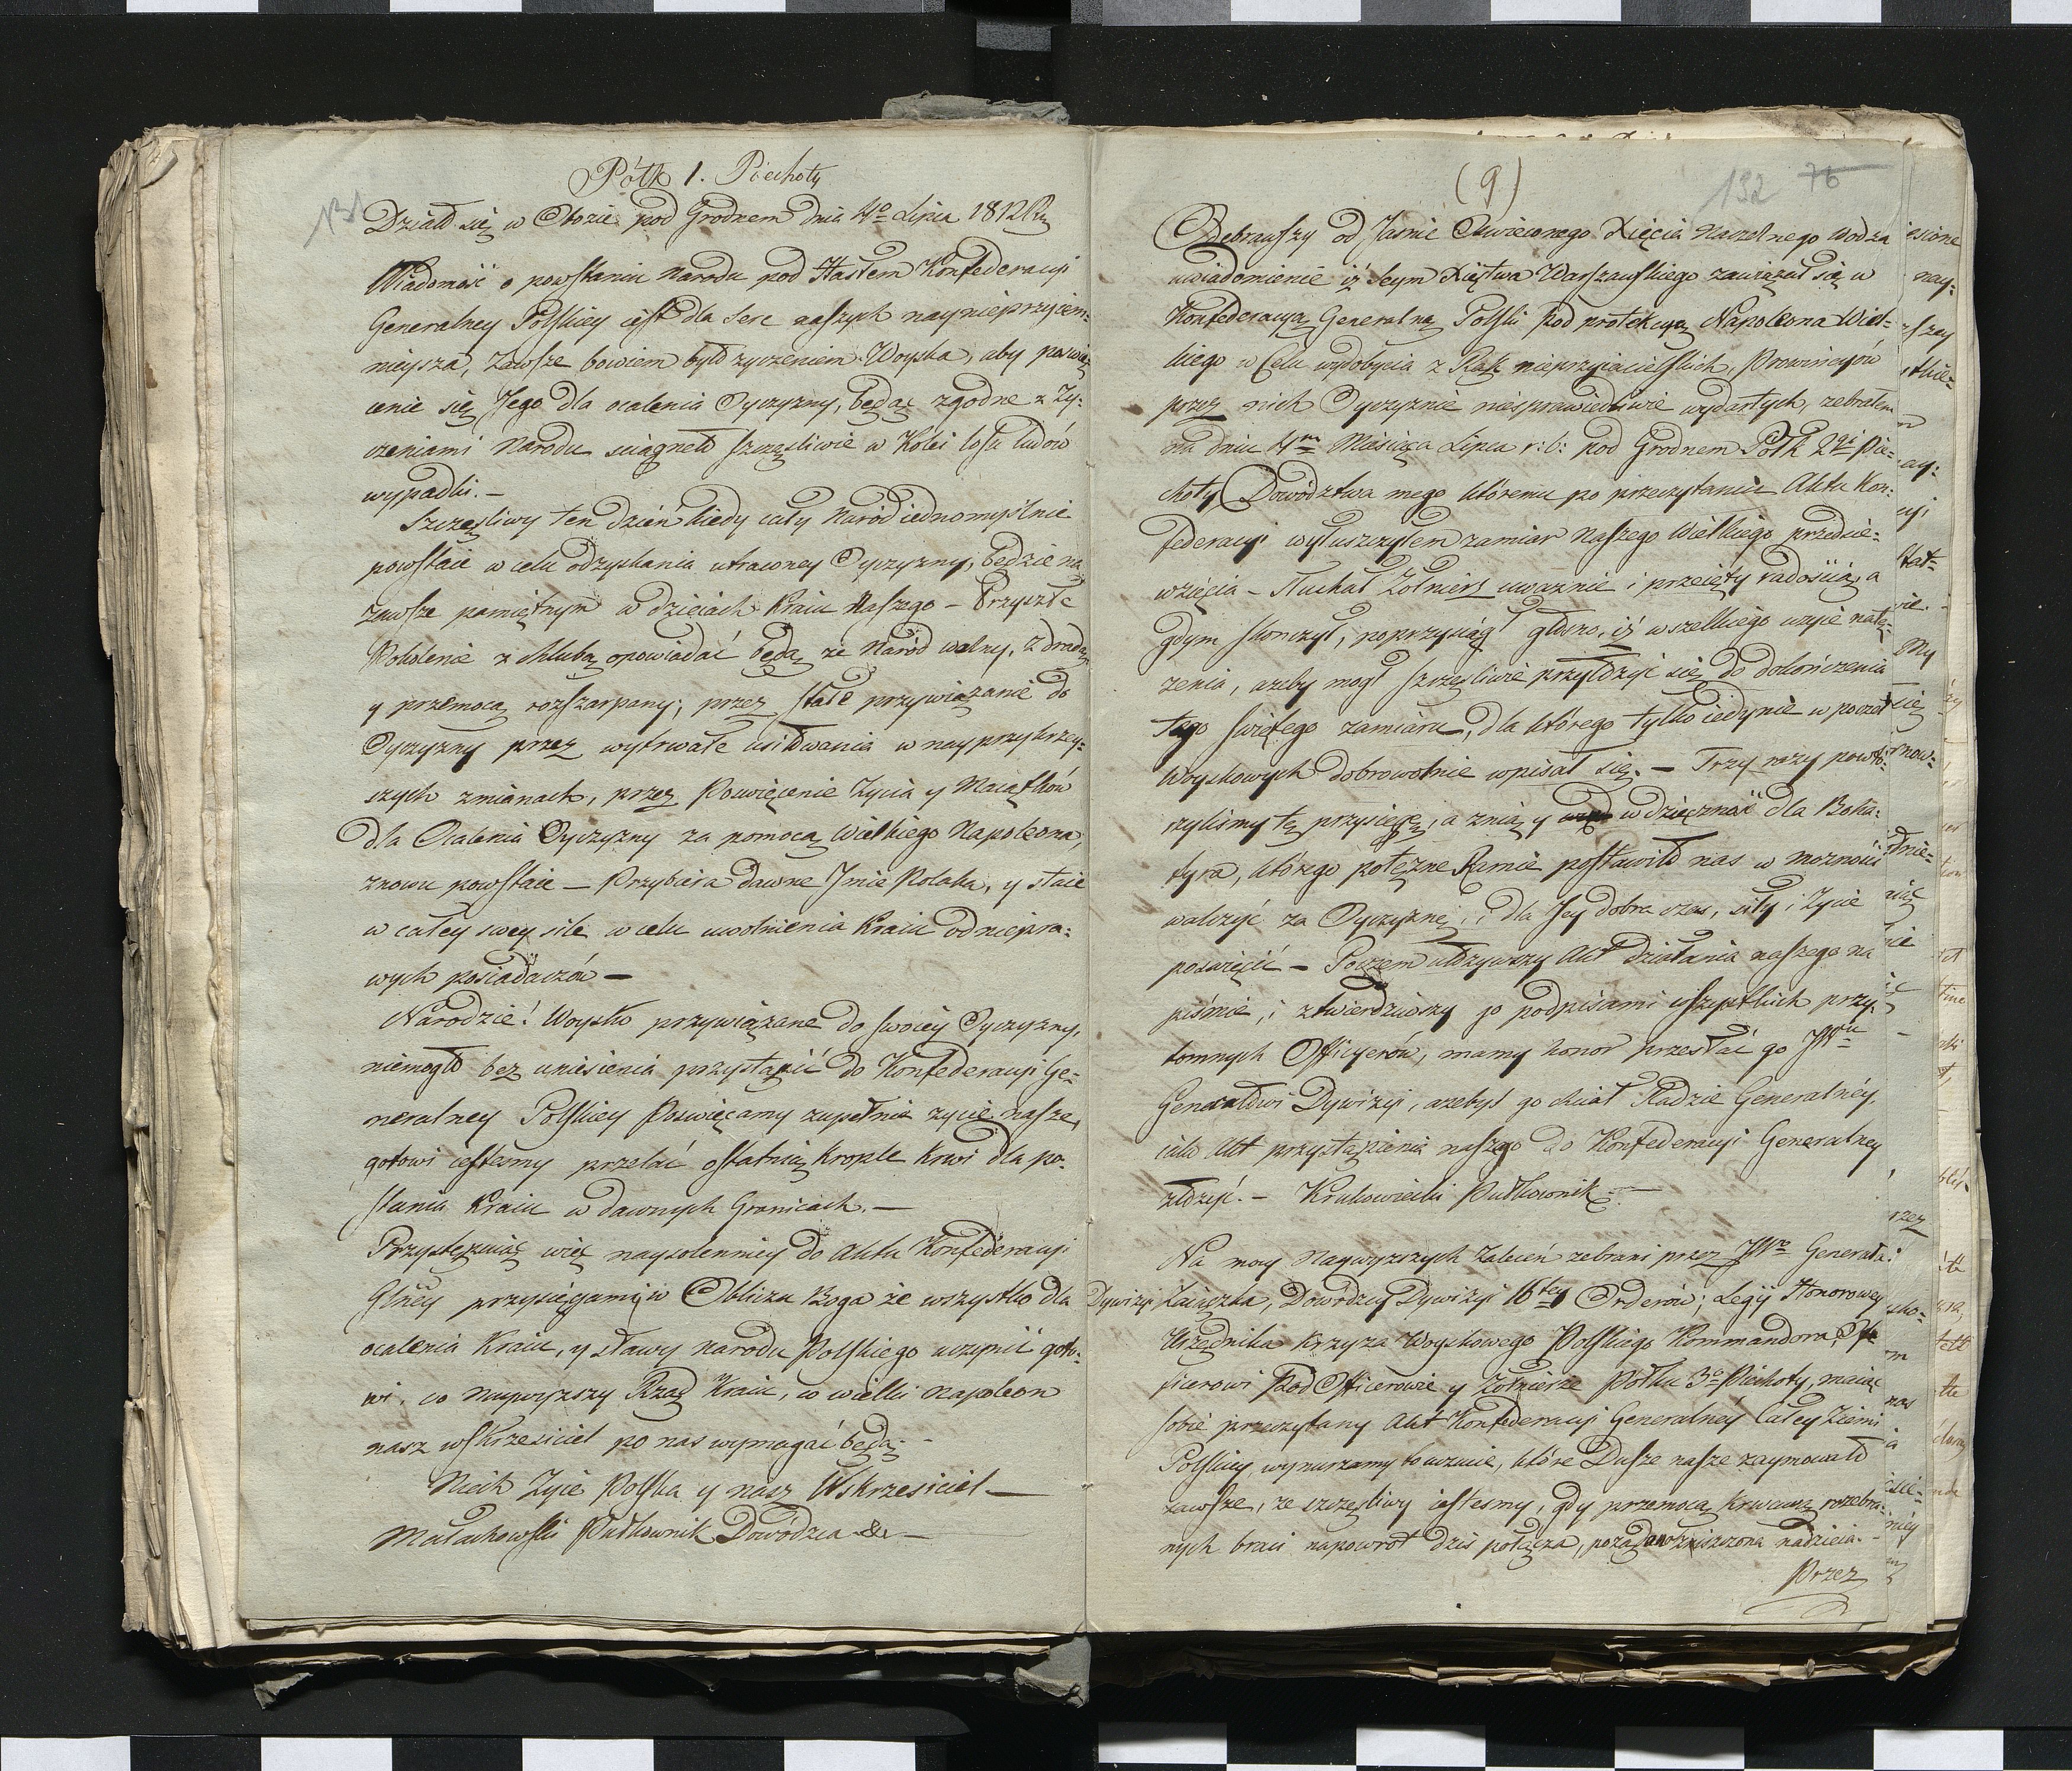 Półk 1. Piechoty
131
Działo się w Obozie pod Grodnem dnia 4º Lipca 1812 Ru
Wiadomość o powstaniu Narodu pod Hasłem Konfederacyi
Generalney Polskiey iest dla Serc naszych nayprzyiem-
nieysza, Zawsze bowiem było życzeniem Woyska, aby poświę
cenie się Jego dla ocalenia Oyczyzny, będąc zgodne z Ży-
czeniami Narodu sciągneło szczęsliwie w Kolei losu ludów
wypadki. —
Szczęsliwy ten dzień kiedy cały Naród iednomyślnie
powstaie w celu odzyskania utraconey Oyczyzny, będzie na
zawsze pamiętnym w dzieiach Kraiu Naszego — Przyszłe
Pokolenie z chlubą opowiadać będą że Naród wolny, zdradą
y przemocą rozszarpany, przez stałe przywiązanie do
Oyczyzny przez wytrwałe usiłowania w nayprzykrzey-
szych zmianach, przez Poswięcenie Życia y Maiątków
dla Ocalenia Oyczyzny za pomocą Wielkiego Napoleona,
znowu powstaie — Przybiera dawne Imie Polaka, y staie
w całey swey sile w celu uwolnienia Kraiu od niepra-
wych posiadaczów —
Narodzie! Woysko przywiązane do swoiey Oyczyzny,
niemogło bez uniesienia przystąpić do Konfederacyi Ge-
neralney Polskiey Poswięcamy zupełnie życie nasze,
gotowi iestesmy przelać ostatnią kroplę krwi dla po-
stania Kraiu w dawnych Granicach. —
Przystępuiąc więc naysolenniey do Aktu Konfederacyi
Glney przysięgamy w Obliczu Boga że wszystko dla
ocalenia Kraiu, y sławy narodu Polskiego uczynić goto-
wi, co Naywyższy Rząd Kraiu, co wielki Napoleon
nasz wskrzesiciel po nas wymagać będą. —
Niech Żyie Polska y nasz Wskrzesiciel —
Małachowski Pułkownik Dowódzca &c —
(9)
132 76
Odebrawszy od Jaśnie Oświeconego Xięcia Naczelnego Wodza
uwiadomienie iż Seym Xięstwa Warszawskiego zawiązał się w
Konfederacyą Generalną Polski pod protekcyą Napoleona Wiel-
kiego w Celu wydobycia z Rąk nieprzyiacielskich, Prowincyów
przez nich Oyczyznie niesprawiedliwie wydartych, zebrałem
na dniu 4m Miesiąca Lipca r: b: pod Grodnem Półk 2gi Pie-
choty Dowództwa mego któremu po przeczytaniu Aktu Kon-
federacyi wyłuszczyłem zamiar Naszego Wielkiego przedsie-
wzięcia — Słuchał Żołnierz uważnie i przeięty radością, a
gdym skonczył, poprzysiągł głosno, iż wszelkiego użyie natę-
żenia, ażeby mogł szczęsliwie przyłożyć się do dokończenia
tego świętego zamiaru, dla którego tylko iedynie w poczet
Woyskowych dobrowolnie wpisał się. — Trzy razy powtó-
rzylismy tę przysięgę, a z nią y wdzięczność dla Boha-
tyra, którego potężne Ramie postawiło nas w możności
walczyć za Oyczyznę, i dla Jey dobra czas, siły, i Życie
poswięcić — Poczem ułożywszy Akt Działania naszego na
piśmie, i ztwierdziwszy go podpisami wszystkich przy-
tomnych Officyerów, mamy honor przesłać go JWmu
Generałowi Dywizyi, ażebys go chciał Radzie Generalnéy,
iako Akt przystąpienia naszego do Konfederacyi Generalney
złożyć. — Krukowiecki Pułkownik —
Na mocy Naywyższych Zaleceń zebrani przez JWo Generała
Dywizyi Zaiączka, Dowódzcy Dywizyi 16tey Orderów; Legii Honorowey
Urzędnika Krzyża Woyskowego Polskiego Kommandora, Of-
ficerowi Pod Officerowie y Żołnierze Półku 3º Piechoty, maiąc
sobie przeczytany Akt Konfederacyi Generalnéy Całey Ziemi
Polskiey, wynurzamy to uczucie, które Dusze nasze zaymowało
zawsze, że szczęsliwy iestesmy, gdy przemocą krwawą rozebra-
nych braci napowrot dzis połącza, nadzieia.
Przez